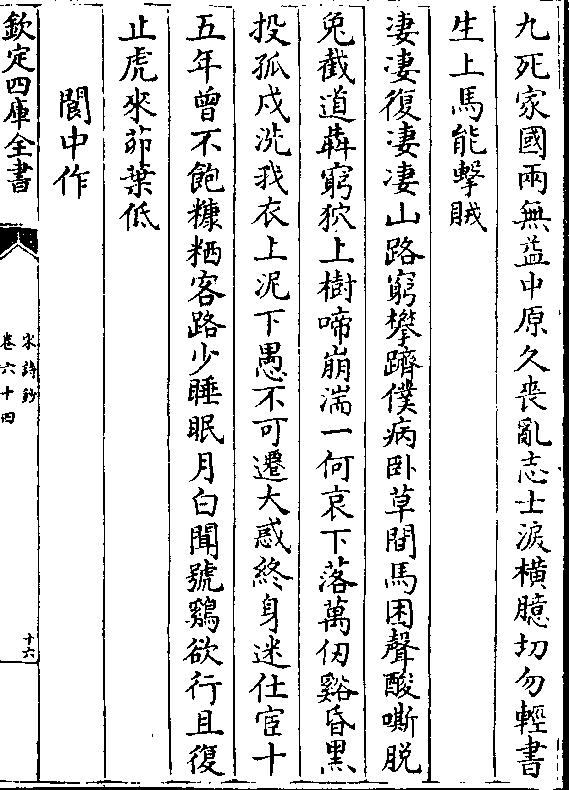 九死家國兩無益中原久喪亂志士淚橫臆切勿輕書
生上馬能擊賊
淒淒復淒淒山路窮攀躋僕病卧草間馬困聲酸嘶脱
兔截道犇窮狖上樹啼崩湍一何哀下落萬仞谿昏黑
投孤戍洗我衣上泥下愚不可遷大惑終身迷仕宦十
五年曾不飽糠粞客路少睡眠月白聞號鷄欲行且復
止虎來茆葉低
閬中作
欽定四庫全書
宋詩鈔
卷六十四
十六